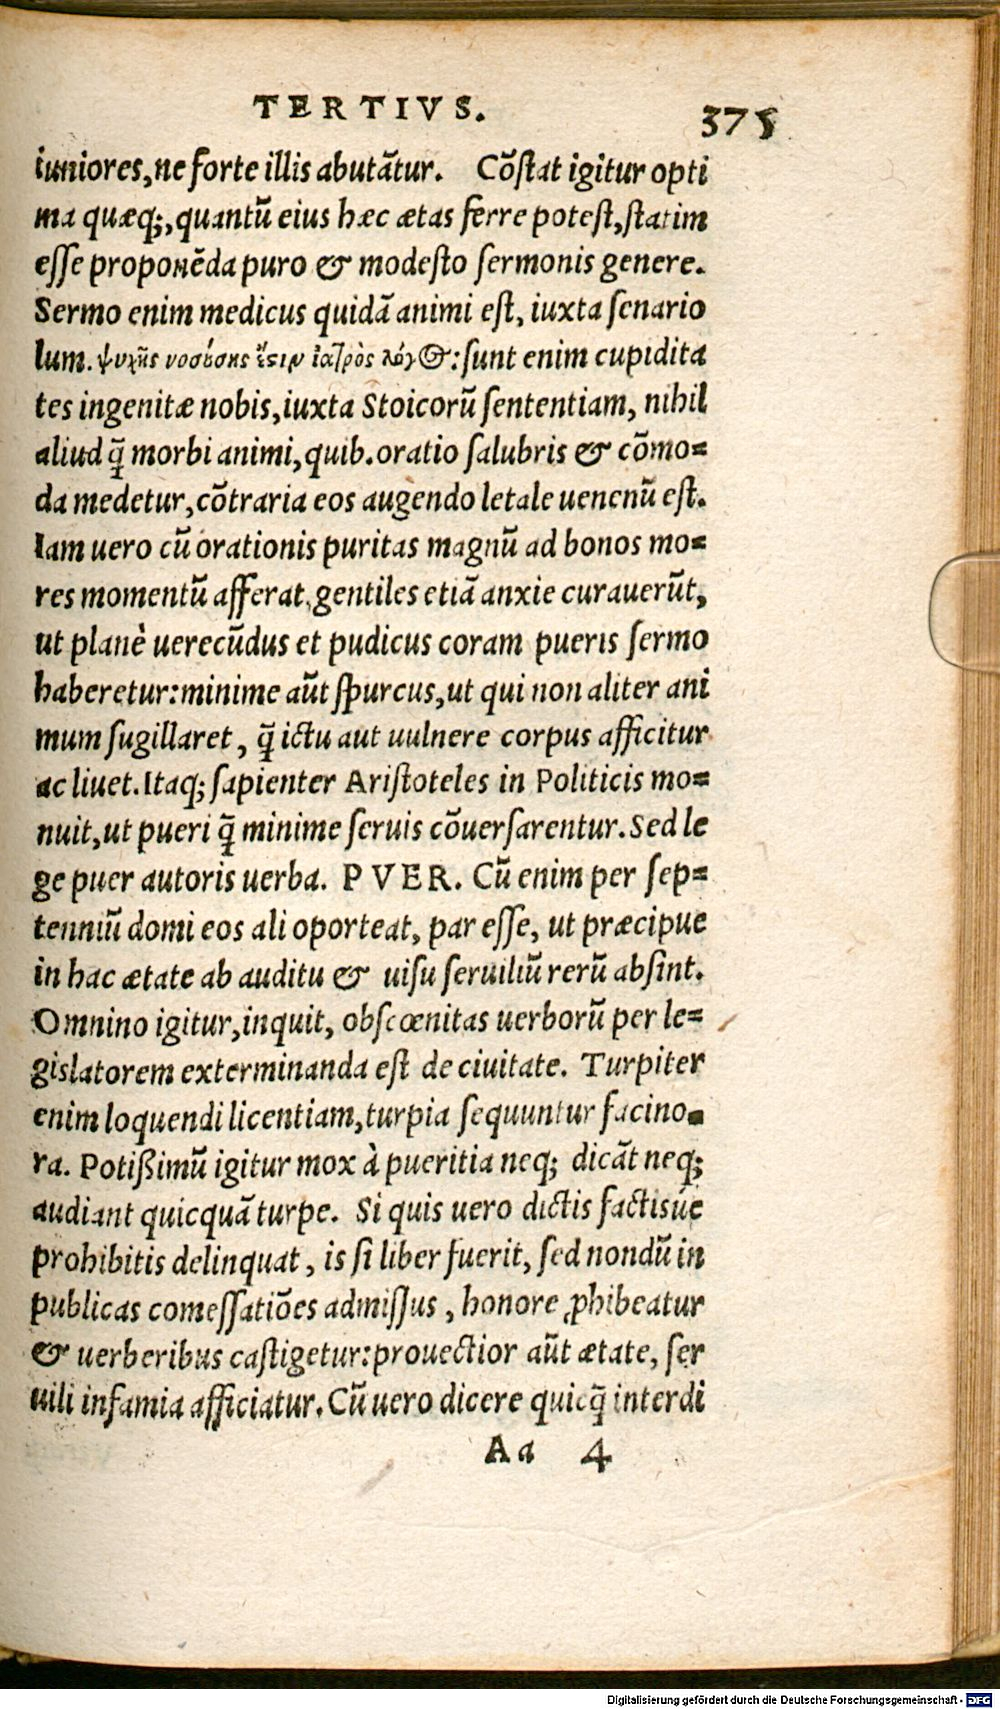 TERTIVS. 375
iuniores, ne forte illis abutãtur. Cõstat igitur opti
ma quæq;, quantũ eius hæc ætas ferre potest, statim
esse proponẽda puro & modesto sermonis genere.
Sermo enim medicus quidã animi est, iuxta senario
lum. ψυχῆς νοσούσης ἔστιν ἰατρὸς λόγος: sunt enim cupidita
tes ingenitæ nobis, iuxta Stoicorũ sententiam, nihil
aliud q̃ morbi animi, quib. oratio salubris & cõmo=
da medetur, cõtraria eos augendo letale uenenũ est.
Iam uero cũ orationis puritas magnũ ad bonos mo=
res momentũ afferat, gentiles etiã anxie curauerũt,
ut planè uerecũdus et pudicus coram pueris sermo
haberetur: minime aũt spurcus, ut qui non aliter ani
mum sugillaret, q̃ ictu aut uulnere corpus afficitur
ac liuet. Itaq; sapienter Aristoteles in Politicis mo=
nuit, ut pueri q̃ minime seruis cõuersarentur. Sed le
ge puer autoris uerba. PVER. Cũ enim per sep=
tenniũ domi eos ali oporteat, par esse, ut præcipue
in hac ætate ab auditu & uisu seruiliũ rerũ absint.
Omnino igitur, inquit, obscœnitas uerborũ per le=
gislatorem exterminanda est de ciuitate. Turpiter
enim loquendi licentiam, turpia sequuntur facino=
ra. Potißimũ igitur mox à pueritia neq; dicãt neq;
audiant quicquã turpe. Si quis uero dictis factisúe
prohibitis delinquat, is si liber fuerit, sed nondũ in
publicas comessatiões admissus, honore ꝓhibeatur
& uerberibus castigetur: prouectior aũt ætate, ser
uili infamia afficiatur. Cũ uero dicere quicq̃ interdi
Aa 4
Digitalisierung gefördert durch die Deutsche Forschungsgemeinschaft - DFG